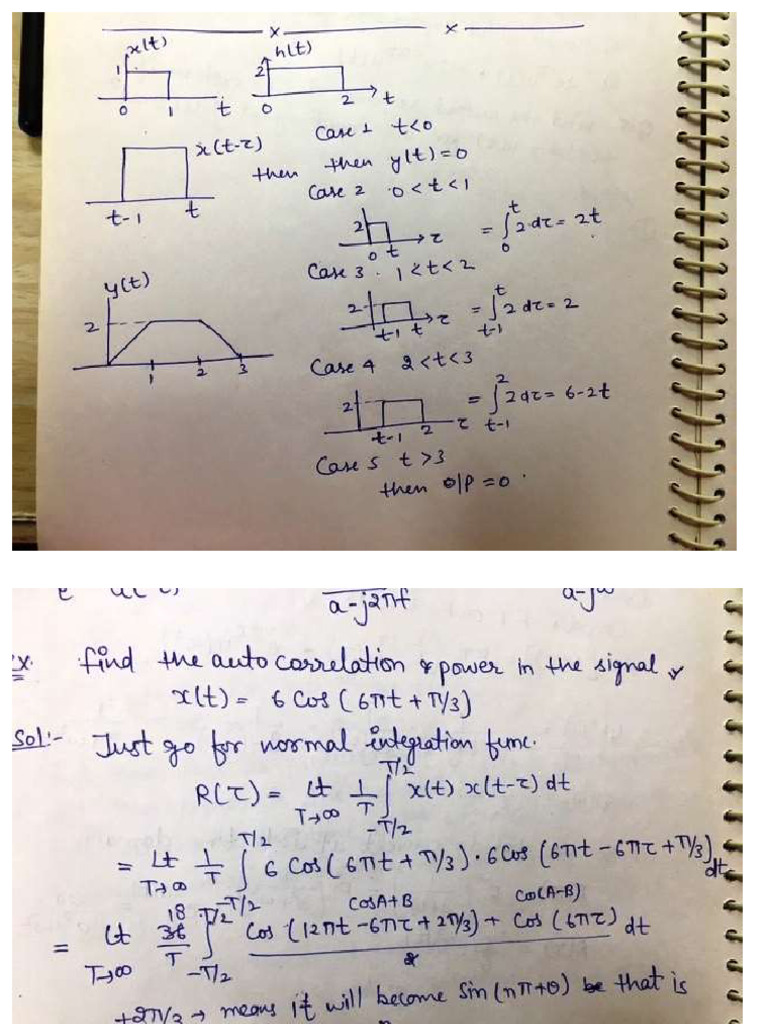 x x
x(t) h(t)
1 2
0 1 t 0 2 t
x(t-τ) Case 1 t<0
then then y(t)=0
t-1 t Case 2 0<t<1
2 0 t τ = ∫₀ᵗ 2 dτ = 2t
Case 3 1<t<2
y(t)
2 t-1 t τ = ∫ₜ₋₁ᵗ 2 dτ = 2
2 1 2 3
Case 4 2<t<3
2 t-1 2 τ = ∫ₜ₋₁² 2dτ = 6-2t
Case 5 t>3
then o/p = 0
a-j2πf
Ex. find the auto correlation & power in the signal
x(t) = 6 Cos (6πt + π/3)
Sol:- Just go for normal integration func.
R(τ) = Lt T→∞ 1/T ∫_{-T/2}^{T/2} x(t) x(t-τ) dt
= Lt T→∞ 1/T ∫_{-T/2}^{T/2} 6 Cos(6πt + π/3) · 6 Cos (6πt - 6πτ + π/3) dt
CosA+B Cos(A-B)
= Lt T→∞ 18 36/T ∫_{-T/2}^{T/2} Cos (12πt - 6πτ + 2π/3) + Cos (6πτ) / 2 dt
+2π/3 → means it will become Sin(nπ+θ) be that is